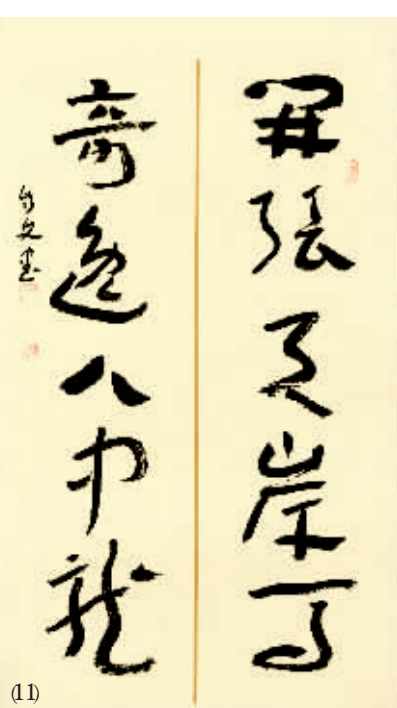 開張天岸馬
奇逸人中龍
(11)